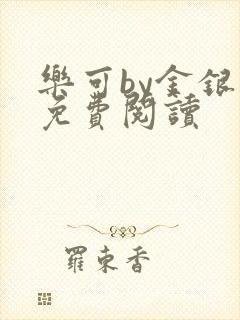 樂可by金銀
免費閱讀
羅東香